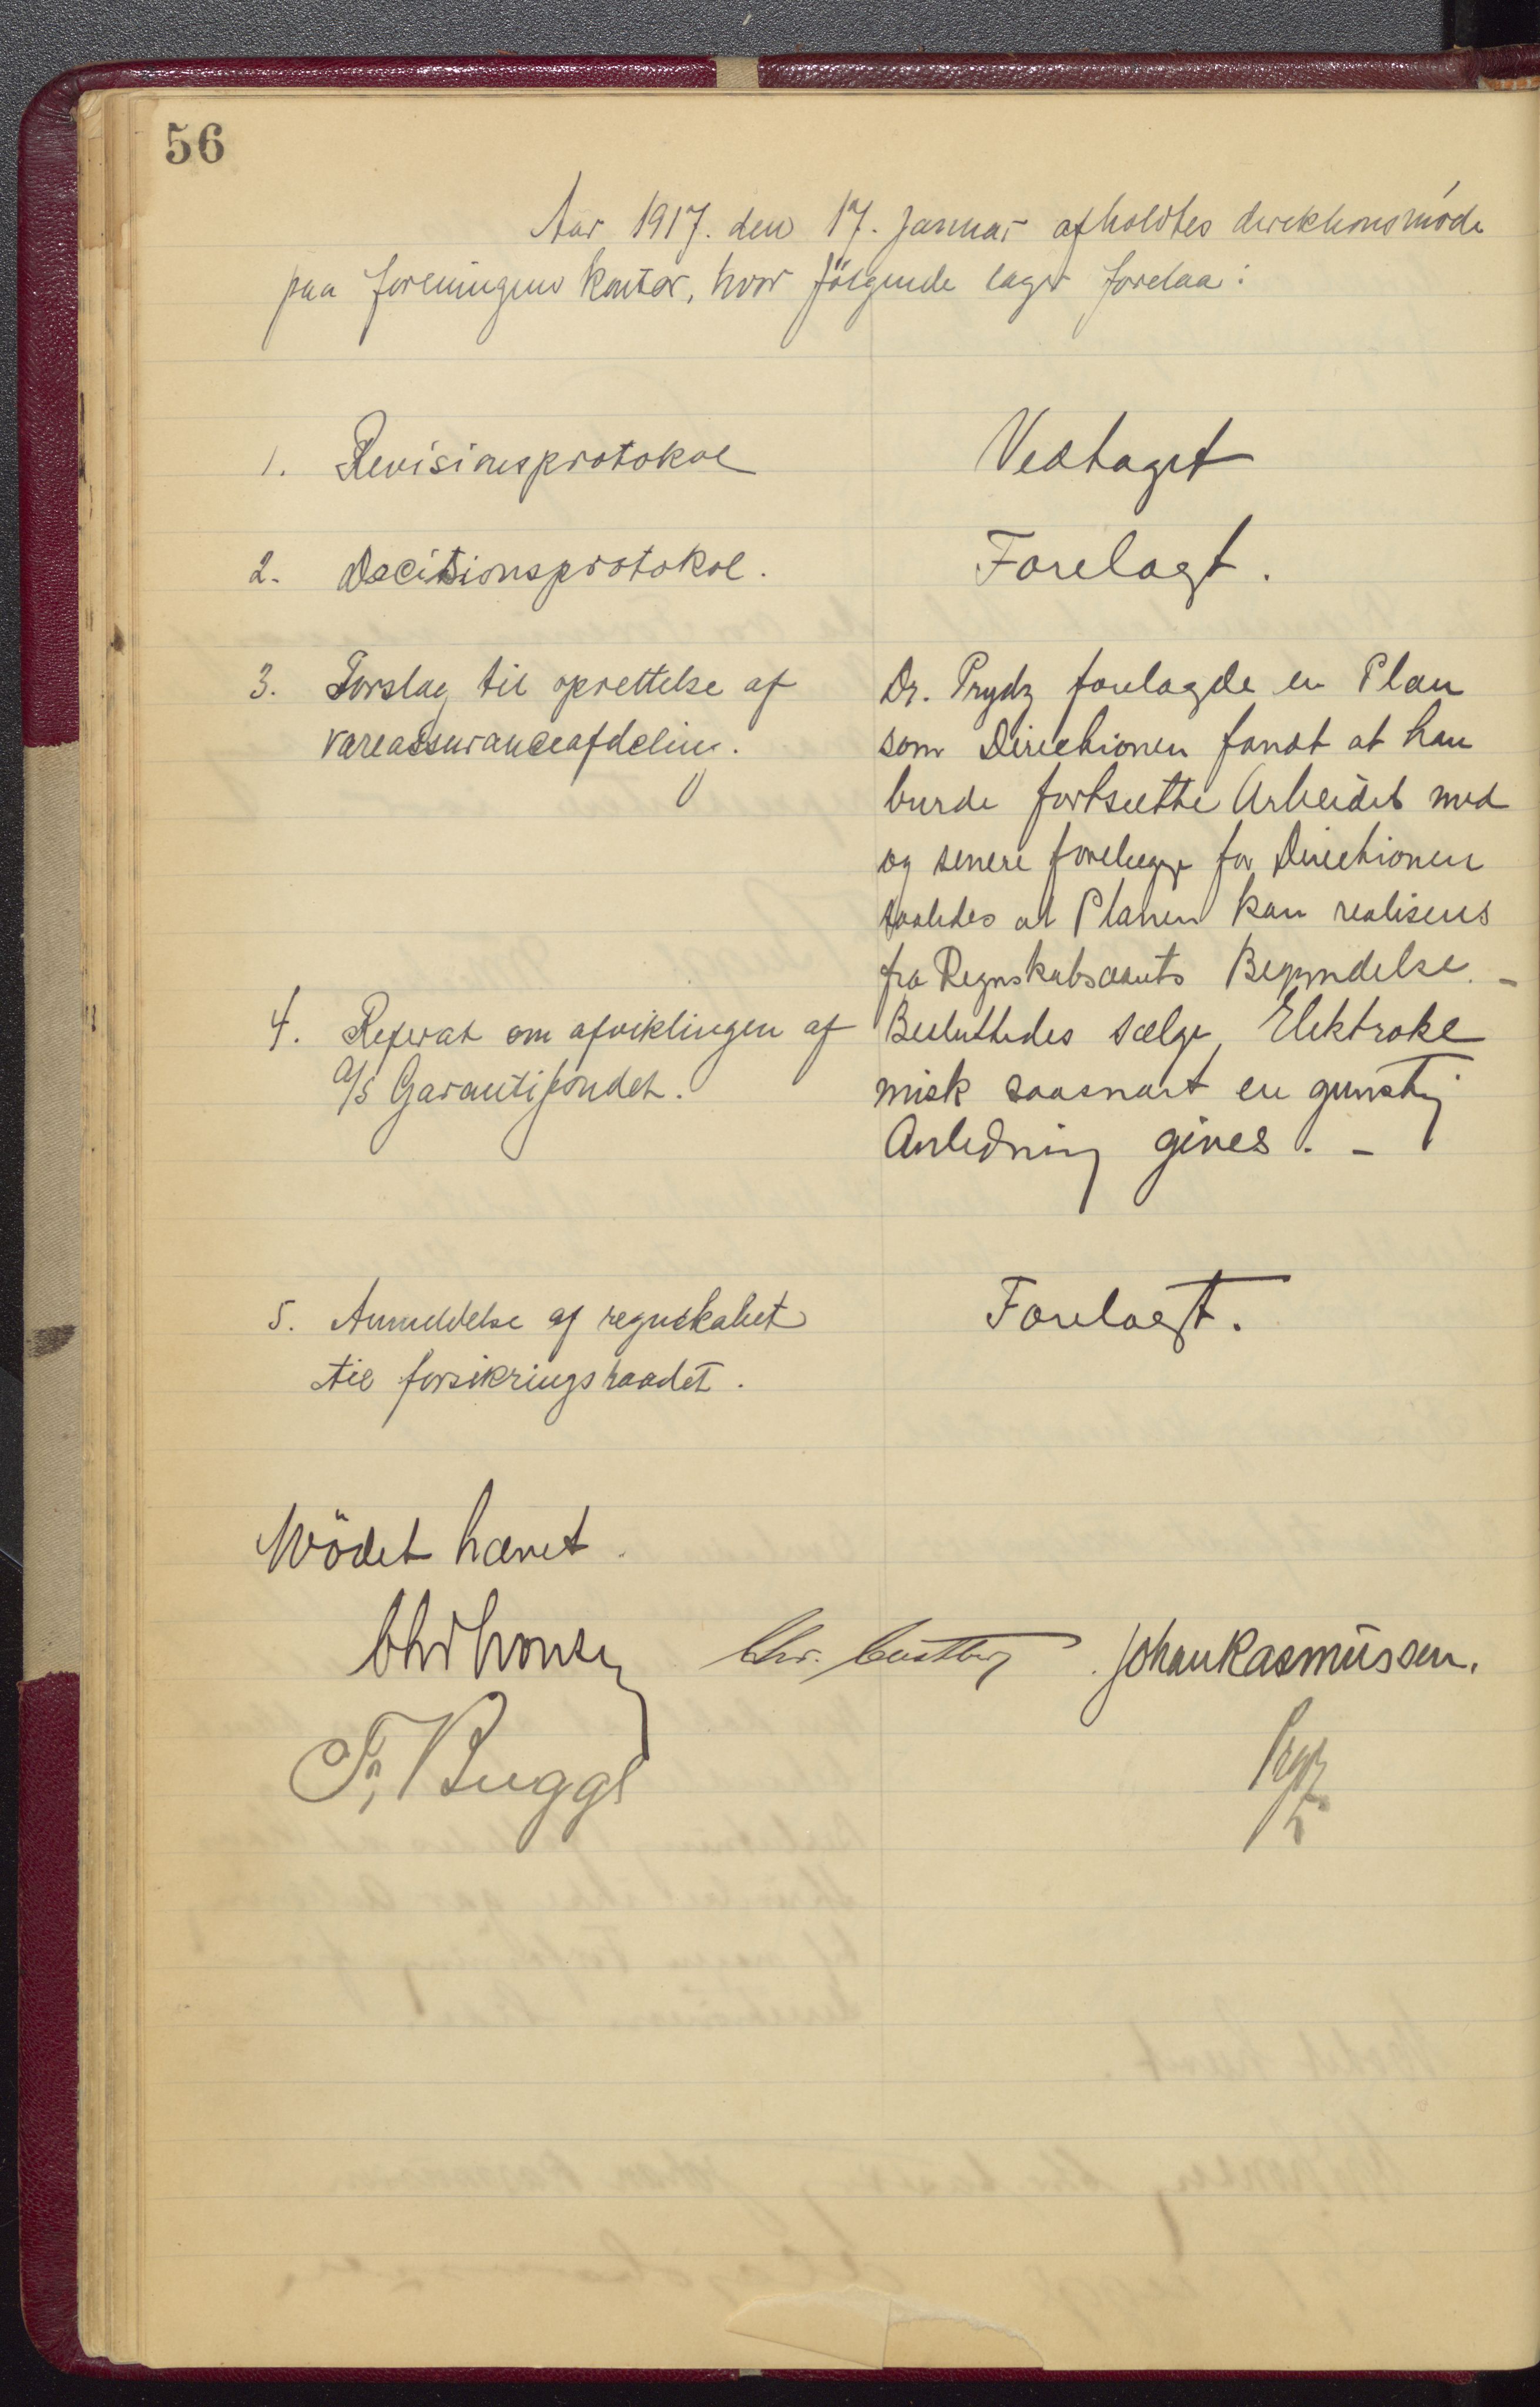 56
Aar 1917. den 17. Januar afholdtes direktionsmöde
paa foreningens kontor, hvor fölgende sager forelaa:
1. Revisionsprotokol
Vedtaget
2. Decisionsprotokol.
Forelagt.
3. Forslag til oprettelse af
vareassuranceafdeling.
Dr. Prydz forelagde en Plan
som Direchionen fandt at han
burde fortsætte Arbeidet med
og senere forelægge for Direchionen
saaledes at Planen kan realiseres
fra Regnskabsaarets Begyndelse. -
4. Referat om afviklingen af
A/S Garantifondet.
Besluttedes sælge Elektroke
misk saasnart en gunstig
Anledning gives. -
5. Anmeldelse af regnskabet
til forsikringsraadet.
Forelagt.
Mödet hævet.
Chr. Johan Rasmüssen.
Fr, Bugge
Prydz